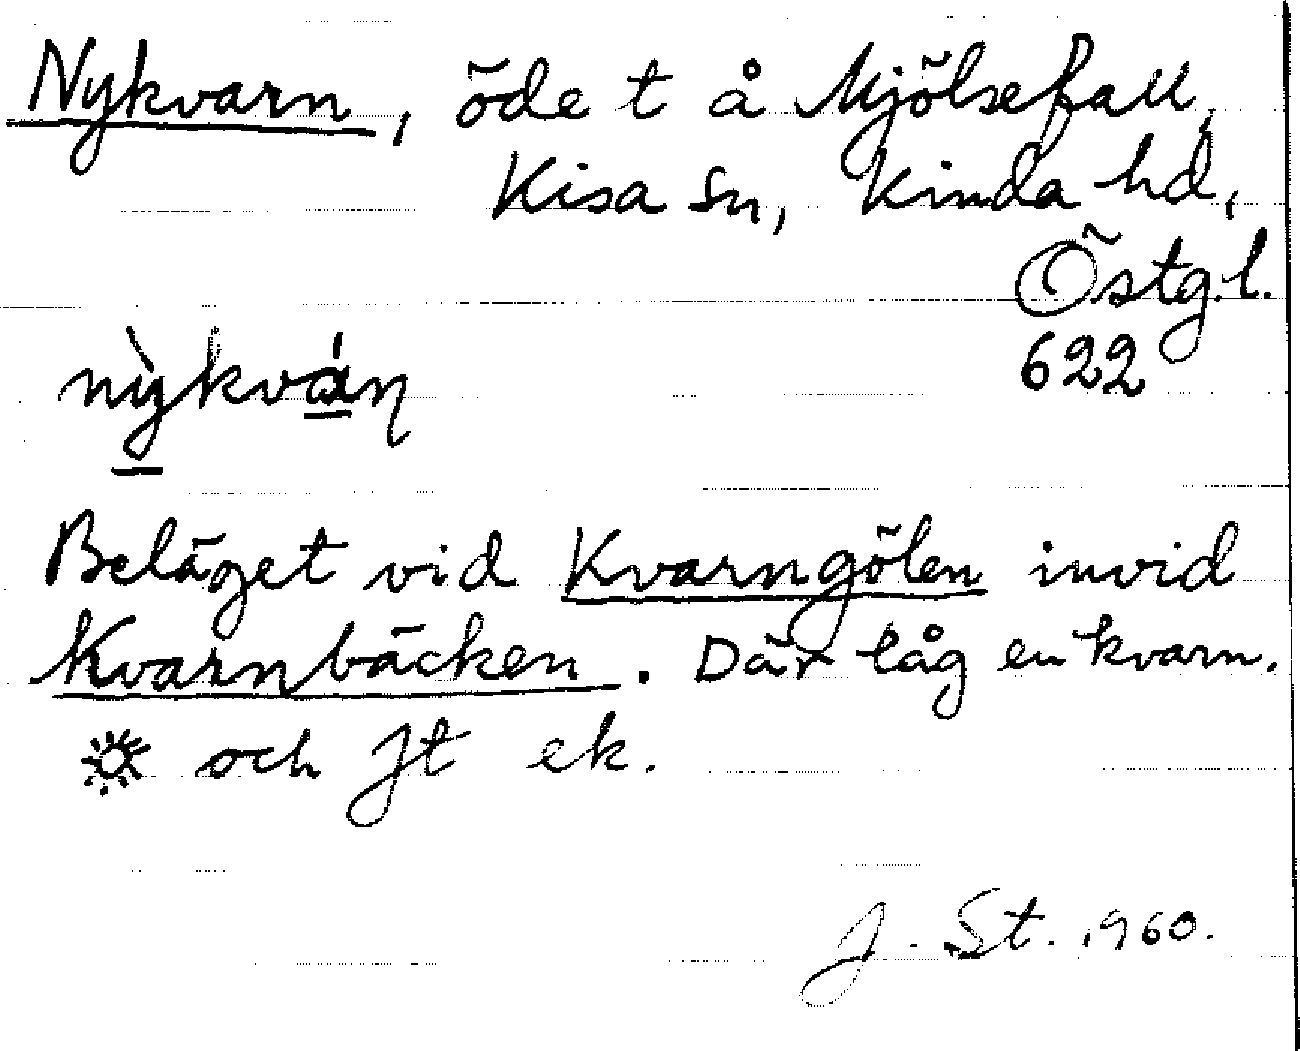 Nykvarn, öde t å Mjölsefall,
Kisa sn, Kinda hd,
Östg.l.
622
nỳkván
Beläget vid Kvarngölen invid
Kvarnbäcken. Där låg en kvarn.
och Jt ek.
J. St. 1960.